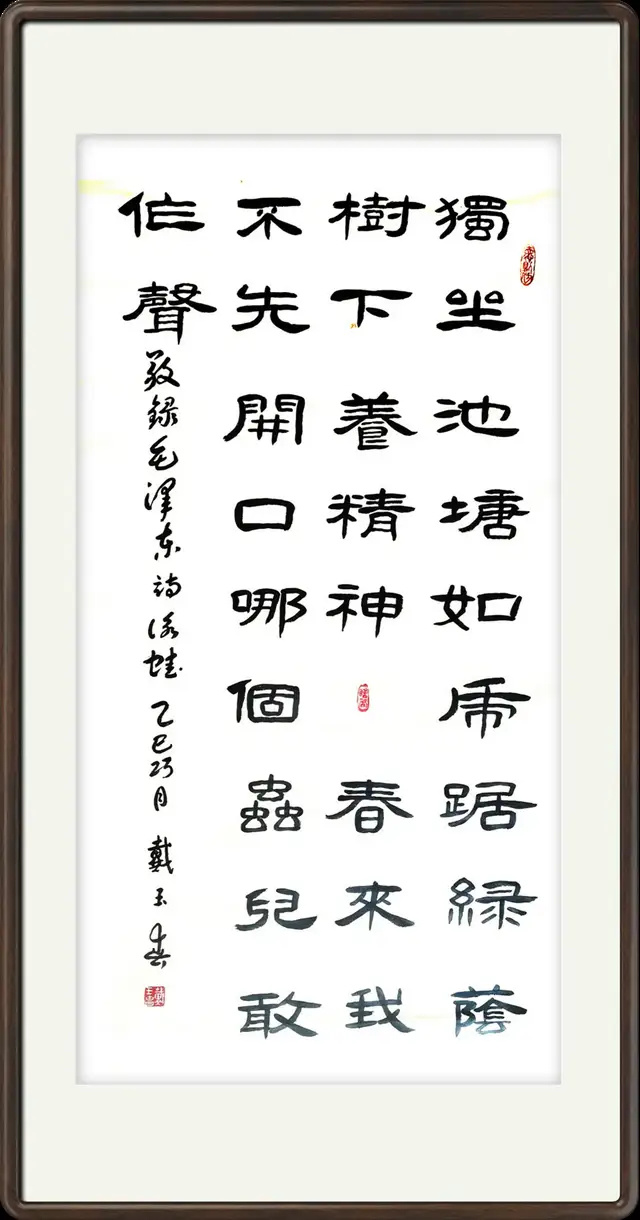 獨坐池塘如虎踞綠蔭
樹下養精神春來我
不先開口哪個蟲兒敢
作聲
敬錄毛泽东詩詠蛙 乙巳巧月 戴玉春